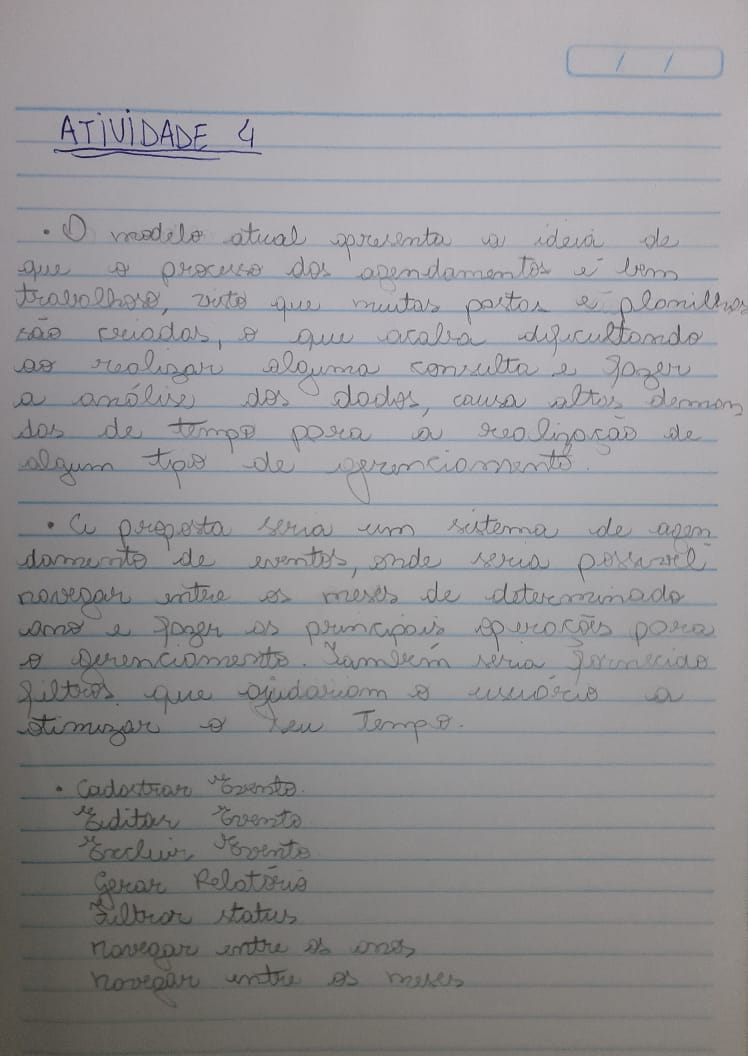 / /
ATIVIDADE 4
• O modelo atual apresenta a ideia de
que o processo dos agendamentos é bem
trabalhoso, visto que muitas pastas e planilhas
são criadas, o que acaba dificultando
ao realizar alguma consulta e fazer
a análise dos dados, causa altas deman
das de tempo para a realização de
algum tipo de gerenciamento.
• A proposta seria um sistema de agen
damento de eventos, onde seria possível
navegar entre os meses de determinado
ano e fazer as principais operações para
o gerenciamento. Também seria fornecido
filtros que ajudariam o usuário a
otimizar o seu Tempo.
• Cadastrar Evento.
Editar Evento
Excluir Evento
Gerar Relatório
Filtrar status
navegar entre os anos
navegar entre os meses